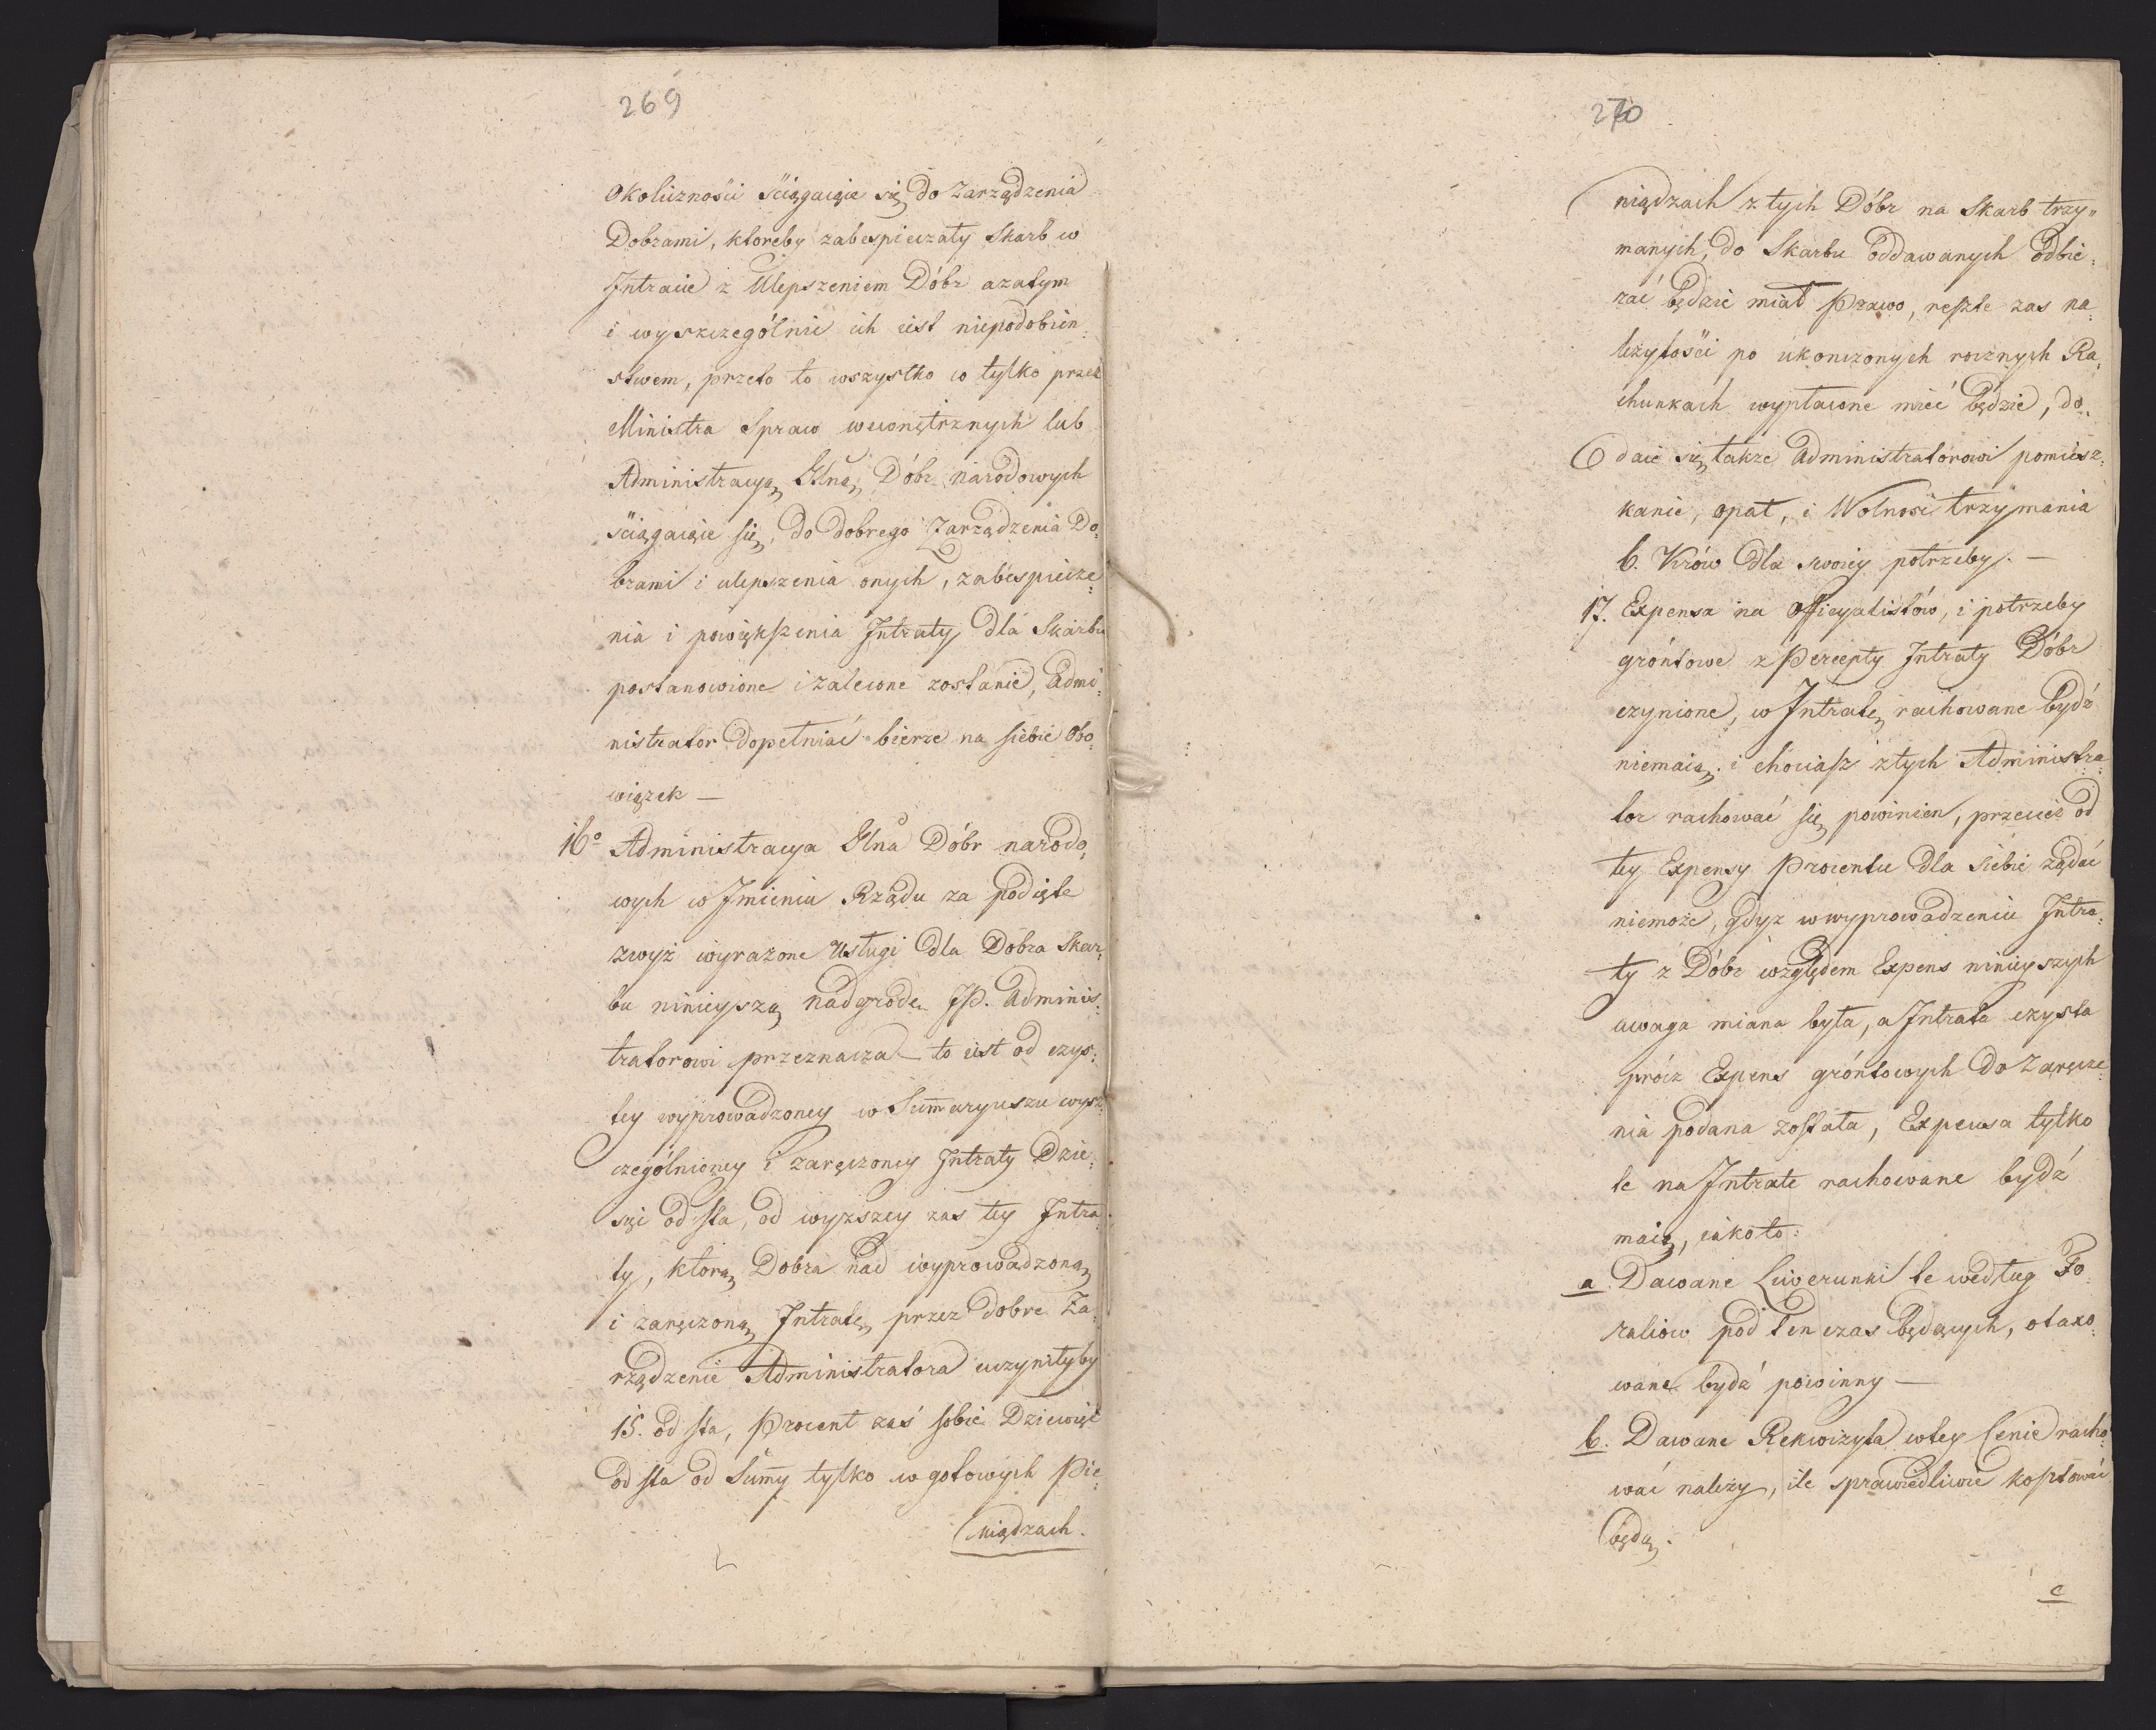 269
okoliczności sciągaiące się do Zarządzenia
Dobrami, ktoreby zabespieczały Skarb w
Intracie z Ulepszeniem Dóbr azatym
i wyszczególnić ich iest niepodobień:
stwem, przeto to wszystko co tylko przez
Ministra Spraw wewnętrznych lub
Administracyą Glną Dóbr narodowych
ściągaiące się, do dobrego Zarządzenia Do:
brami i ulepszenia onych, zabespiecze:
nia i powiększenia Intraty dla Skarbu
postanowione i zalecone zostanie, Admi:
nistrator dopełniać bierze na siebie Obo:
wiązek —
16º Administracya Glna Dóbr narodo:
wych w Jmieniu Rządu za podięte
zwyż wyrażone Usługi dla Dobra Skar:
bu ninieyszą nadgrodę JP. Adminis:
tratorowi przeznacza – to iest od czys:
tey wyprowadzoney w Sum̄aryuszu wysz:
czególnioney i zaręczoney Intraty Dzie:
sięć od sta, od wyższey zas tey Intra:
ty, którą Dobra nad wyprowadzoną
i zaręczoną Intratę, przez dobre Za:
rządzenie Administratora uczyniłyby
15. od sta, Procent zaś sobie Dziewięć
od sta od Sum̄y tylko w gotowych Pie:
niądzach.
270
niądzach z tych Dóbr na Skarb trzy„
manych, do Skarbu oddawanych odbie:
rać będzie miał Prawo, resztę zas na:
leżytości po ukonczonych rocznych Ra:
chunkach wypłacone mieć będzie, do:
daie się także Administratorowi pomiesz:
kanie, opał, i Wolnosc trzymania
6. Krów dla swoiey potrzeby. —
17. Expensa na Officyalistów, i potrzeby
gróntowe z Percepty Intraty Dóbr
czynione, w Intratę rachowane bydź
niemaią; i chociasz z tych Administra:
tor rachować się powinien, przecież od
tey Expensy Procentu dla siebie żądać
niemoże, gdyz w wyprowadzeniu Intra:
ty z Dóbr względem Expens ninieyszych
uwaga miana była, a Intrata czysta
prócz Expens gróntowych do Zaręcze:
nia podana została, Expensa tylko
te na Intratę rachowane bydź
maią, iakoto:
a. Dawane Liwerunki te według Fo:
raliow pod ten czas będących, otaxo:
wane bydź powinny —
b. Dawane Rekwizyta w tey Cenie racho:
wać należy, ile sprawiedliwie kosztować
będą.
c